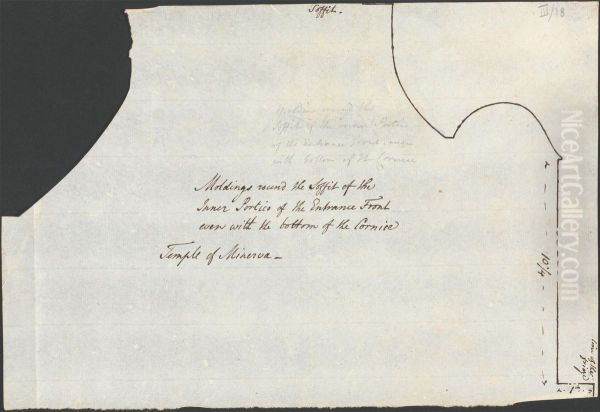 Soffit.
III/18
Moldings round the
Soffit of the inner Portico
of the Entrance Front even
with bottom of the Cornice
Moldings round the Soffit of the
Inner Portico of the Entrance Front
even with the bottom of the Cornice
Temple of Minerva
10¼
NiceArtGallery.com